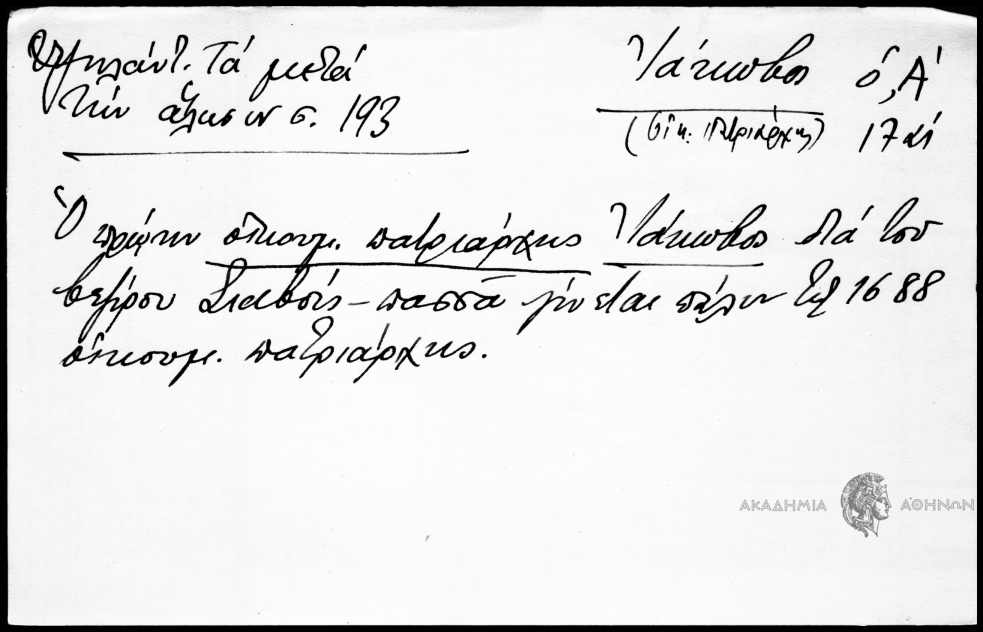 Ὑψηλάντ. Τά μετά
τήν ἅλωσιν σ. 193
Ἰάκωβος ὁ, Α΄
(Οἰκ. πατριάρχης) 17 αἰ
Ὁ πρώην οἰκουμ. πατριάρχης Ἰάκωβος διά τοῦ
βεζίρου Σιαβούς-πασσᾶ γίνεται πάλιν τῷ 1688
οἰκουμ. πατριάρχης.
ΑΚΑΔΗΜΙΑ ΑΘΗΝΩΝ